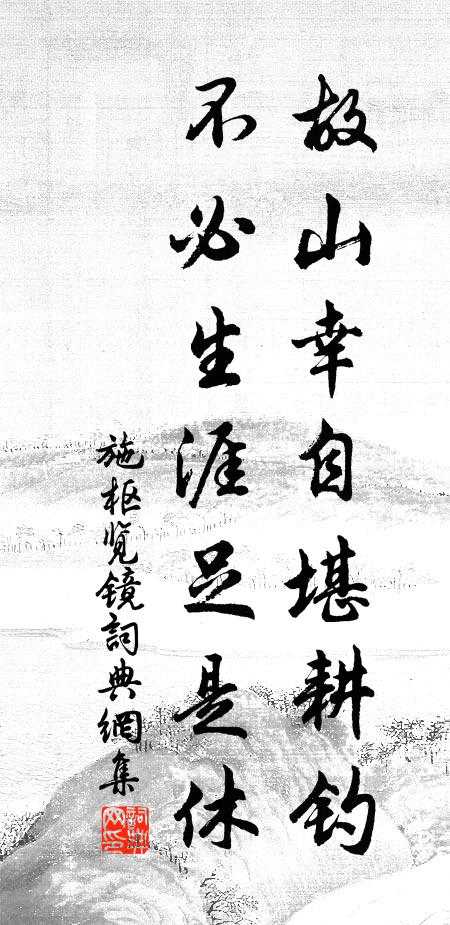 故山幸自堪耕钓
不必生涯足是休
施枢览镜詞典網集